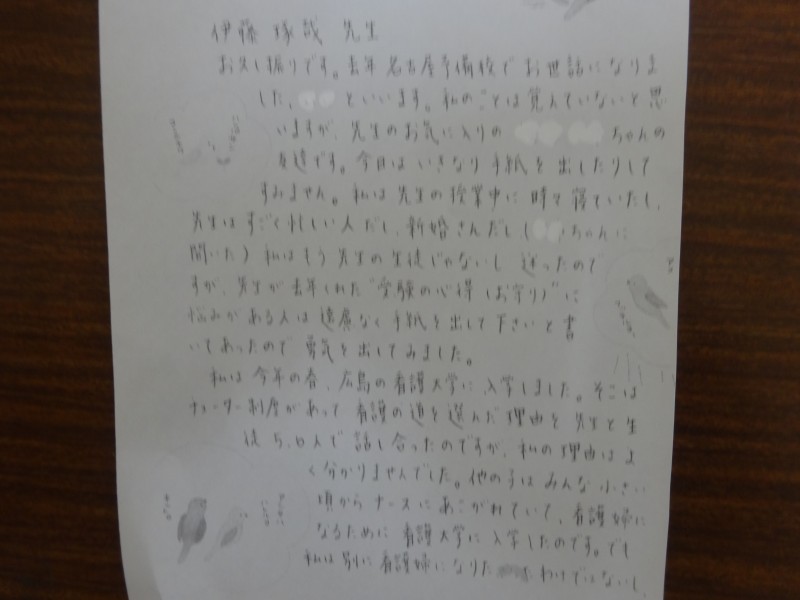 伊藤 琢哉 先生
お久し振りです。去年名古屋予備校でお世話になりま
した、 といいます。私のことは覚えていないと思
いますが、先生のお気に入りの ちゃんの
友達です。今日はいきなり手紙を出したりして
すみません。私は先生の授業中に時々寝ていたし、
先生はすごく忙しい人だし、新婚さんだし( ちゃんに
聞いた)私はもう先生の生徒じゃないし 迷ったので
すが、先生が去年くれた"受験の心得(お守り)"に
悩みがある人は遠慮なく手紙を出して下さいと書
いてあったので 勇気を出してみました。
私は今年の春、広島の看護大学に入学しました。そこは
チューター制度があって看護の道を選んだ理由を先生と生
徒5,6人で話し合ったのですが、私の理由はよ
く分かりませんでした。他の子はみんな小さい
頃からナースにあこがれていて、看護婦に
なるために看護大学に入学したのです。でも
私は別に看護婦になりた わけではないし、